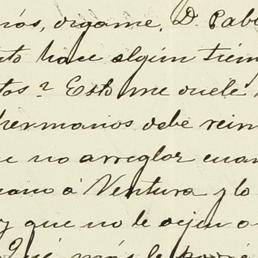 nós, digame, D. Pabl
nto hace algún tiém
tos? Esto me duele
hermanos debe rein
e no arreglar cuan
cano á Ventura y lo
y que no le dejen o
Qué más le